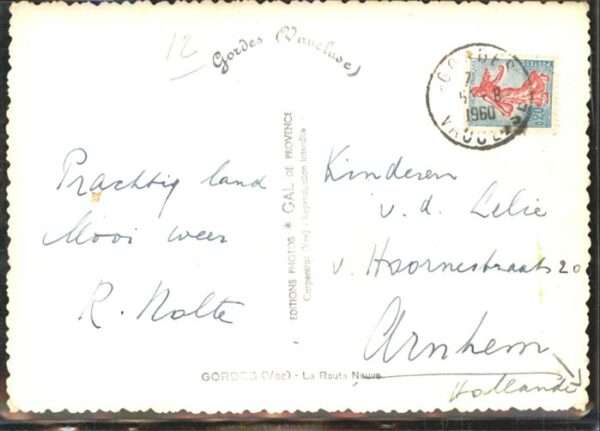 12
Gordes (Vaucluse)
GORDES
5-8
1960
VAUCLUSE
0,20
Prachtig land
Mooi weer
R. Nolte
EDITIONS PHOTOS * GAL DE PROVENCE
Reproduction interdite
Kinderen
v. d. Lelie
v. Hoornestraat 20
Arnhem
Hollande
GORDES (Vse) - La Route Neuve